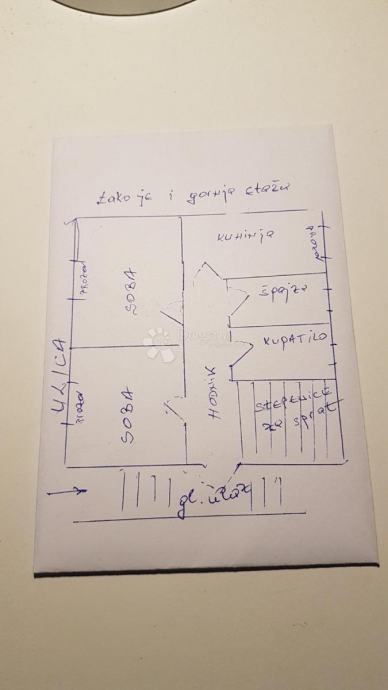 tako je i gornja etaža
KUHINJA
PROZOR
PROZOR
SOBA
špajz
KUPATILO
ULICA
HODNIK
STEPENICE
ZA SPRAT
PROZOR
SOBA
gl. ulaz